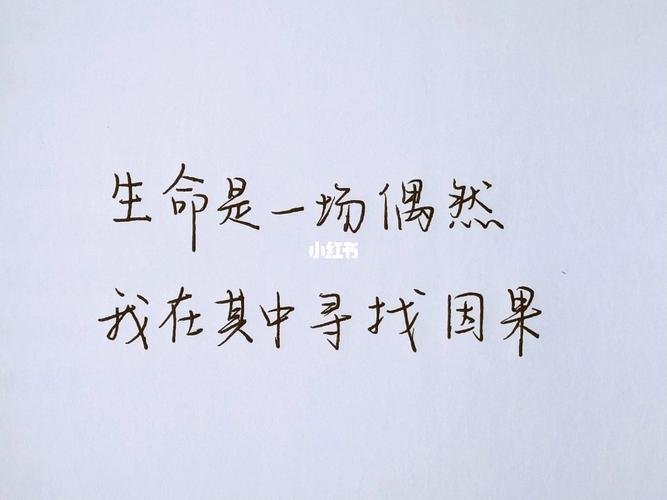 生命是一场偶然
小红书
我在其中寻找因果